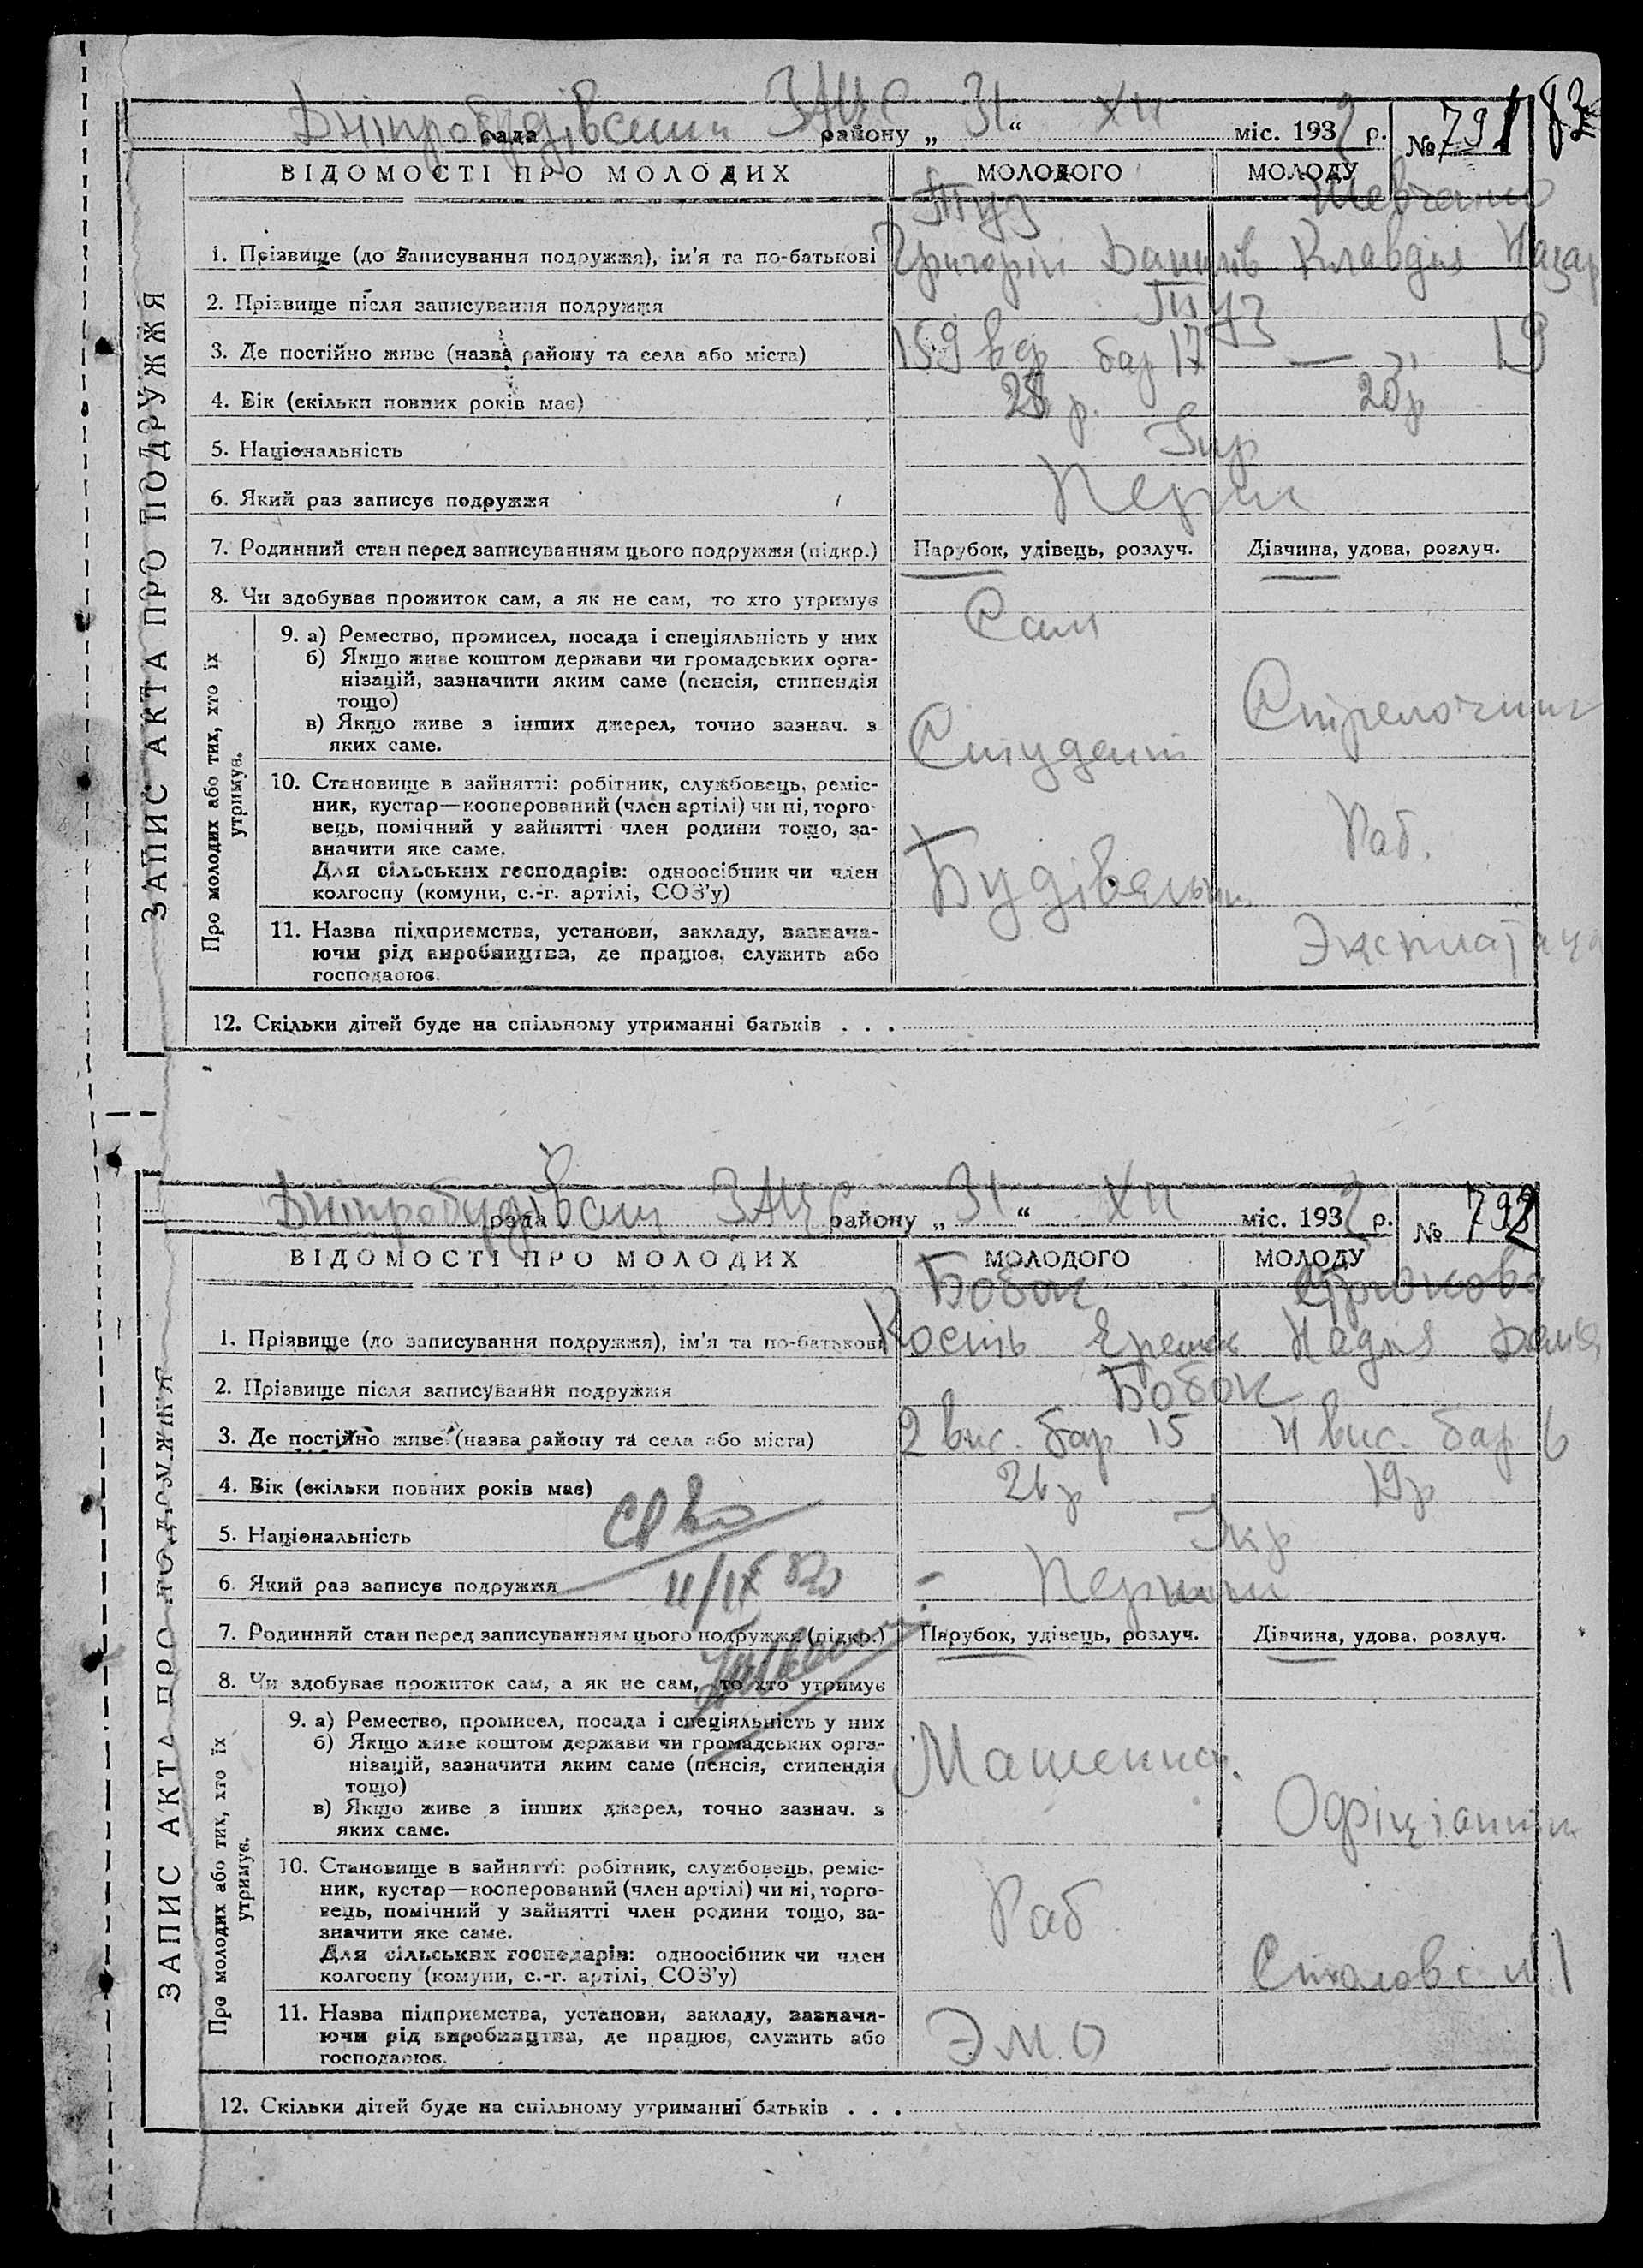 Дніпробудівський ЗАЦС 31 XII 83
рада району „ “ міс. 1932 р. № 791
ВІДОМОСТІ ПРО МОЛОДИХ МОЛОДОГО МОЛОДУ
Туз Шевченко
1. Прізвище (до записування подружжя), ім'я та по-батькові Григорій Данилів Клавдія Назар
2. Прізвище після записування подружжя Туз
3. Де постійно живе (назва району та села або міста) 159 бар 17 — „ 19
4. Вік (скільки повних років має) 28 р. 20 р
5. Національність Укр
6. Який раз записує подружжя Перш
7. Родинний стан перед записуванням цього подружжя (підкр.) Парубок, удівець, розлуч. Дівчина, удова, розлуч.
8. Чи здобуває прожиток сам, а як не сам, то хто утримує Сам
ЗАПИС АКТА ПРО ПОДРУЖЖЯ
Про молодих або тих, хто їх утримує.
9. а) Ремество, промисел, посада і спеціяльність у них
б) Якщо живе коштом держави чи громадських орга-
нізацій, зазначити яким саме (пенсія, стипендія
тощо)
в) Якщо живе з інших джерел, точно зазнач. з
яких саме.
Студент Стрелочниц
10. Становище в зайнятті: робітник, службовець, реміс-
ник, кустар—кооперований (член артілі) чи ні, торго-
вець, помічний у зайнятті член родини тощо, за-
значити яке саме.
Для сільських господарів: одноосібник чи член
колгоспу (комуни, с.-г. артілі, СОЗ'у)
Будівельн. Раб.
11. Назва підприємства, установи, закладу, зазнача-
ючи рід виробництва, де працює, служить або
господарює.
Эксплатаца
12. Скільки дітей буде на спільному утриманні батьків . . .
Дніпробудівськ ЗАЦС 31 XII
рада району „ “ міс. 1932 р. № 792
ВІДОМОСТІ ПРО МОЛОДИХ МОЛОДОГО МОЛОДУ
Бобок
1. Прізвище (до записування подружжя), ім'я та по-батькові Кость Надія
2. Прізвище після записування подружжя Бобок
3. Де постійно живе (назва району та села або міста) 2 вис. бар 15 4 вис. бар 6
4. Вік (скільки повних років має) 26 р 19 р
5. Національність Укр
6. Який раз записує подружжя Перший
11/IX 82
7. Родинний стан перед записуванням цього подружжя (підкр.) Парубок, удівець, розлуч. Дівчина, удова, розлуч.
8. Чи здобуває прожиток сам, а як не сам, то хто утримує
ЗАПИС АКТА ПРО ПОДРУЖЖЯ
Про молодих або тих, хто їх утримує.
9. а) Ремество, промисел, посада і спеціяльність у них
б) Якщо живе коштом держави чи громадських орга-
нізацій, зазначити яким саме (пенсія, стипендія
тощо)
в) Якщо живе з інших джерел, точно зазнач. з
яких саме.
Офіціантк
10. Становище в зайнятті: робітник, службовець, реміс-
ник, кустар—кооперований (член артілі) чи ні, торго-
вець, помічний у зайнятті член родини тощо, за-
значити яке саме.
Для сільських господарів: одноосібник чи член
колгоспу (комуни, с.-г. артілі, СОЗ'у)
Раб
11. Назва підприємства, установи, закладу, зазнача-
ючи рід виробництва, де працює, служить або
господарює.
ЭМО
12. Скільки дітей буде на спільному утриманні батьків . . .